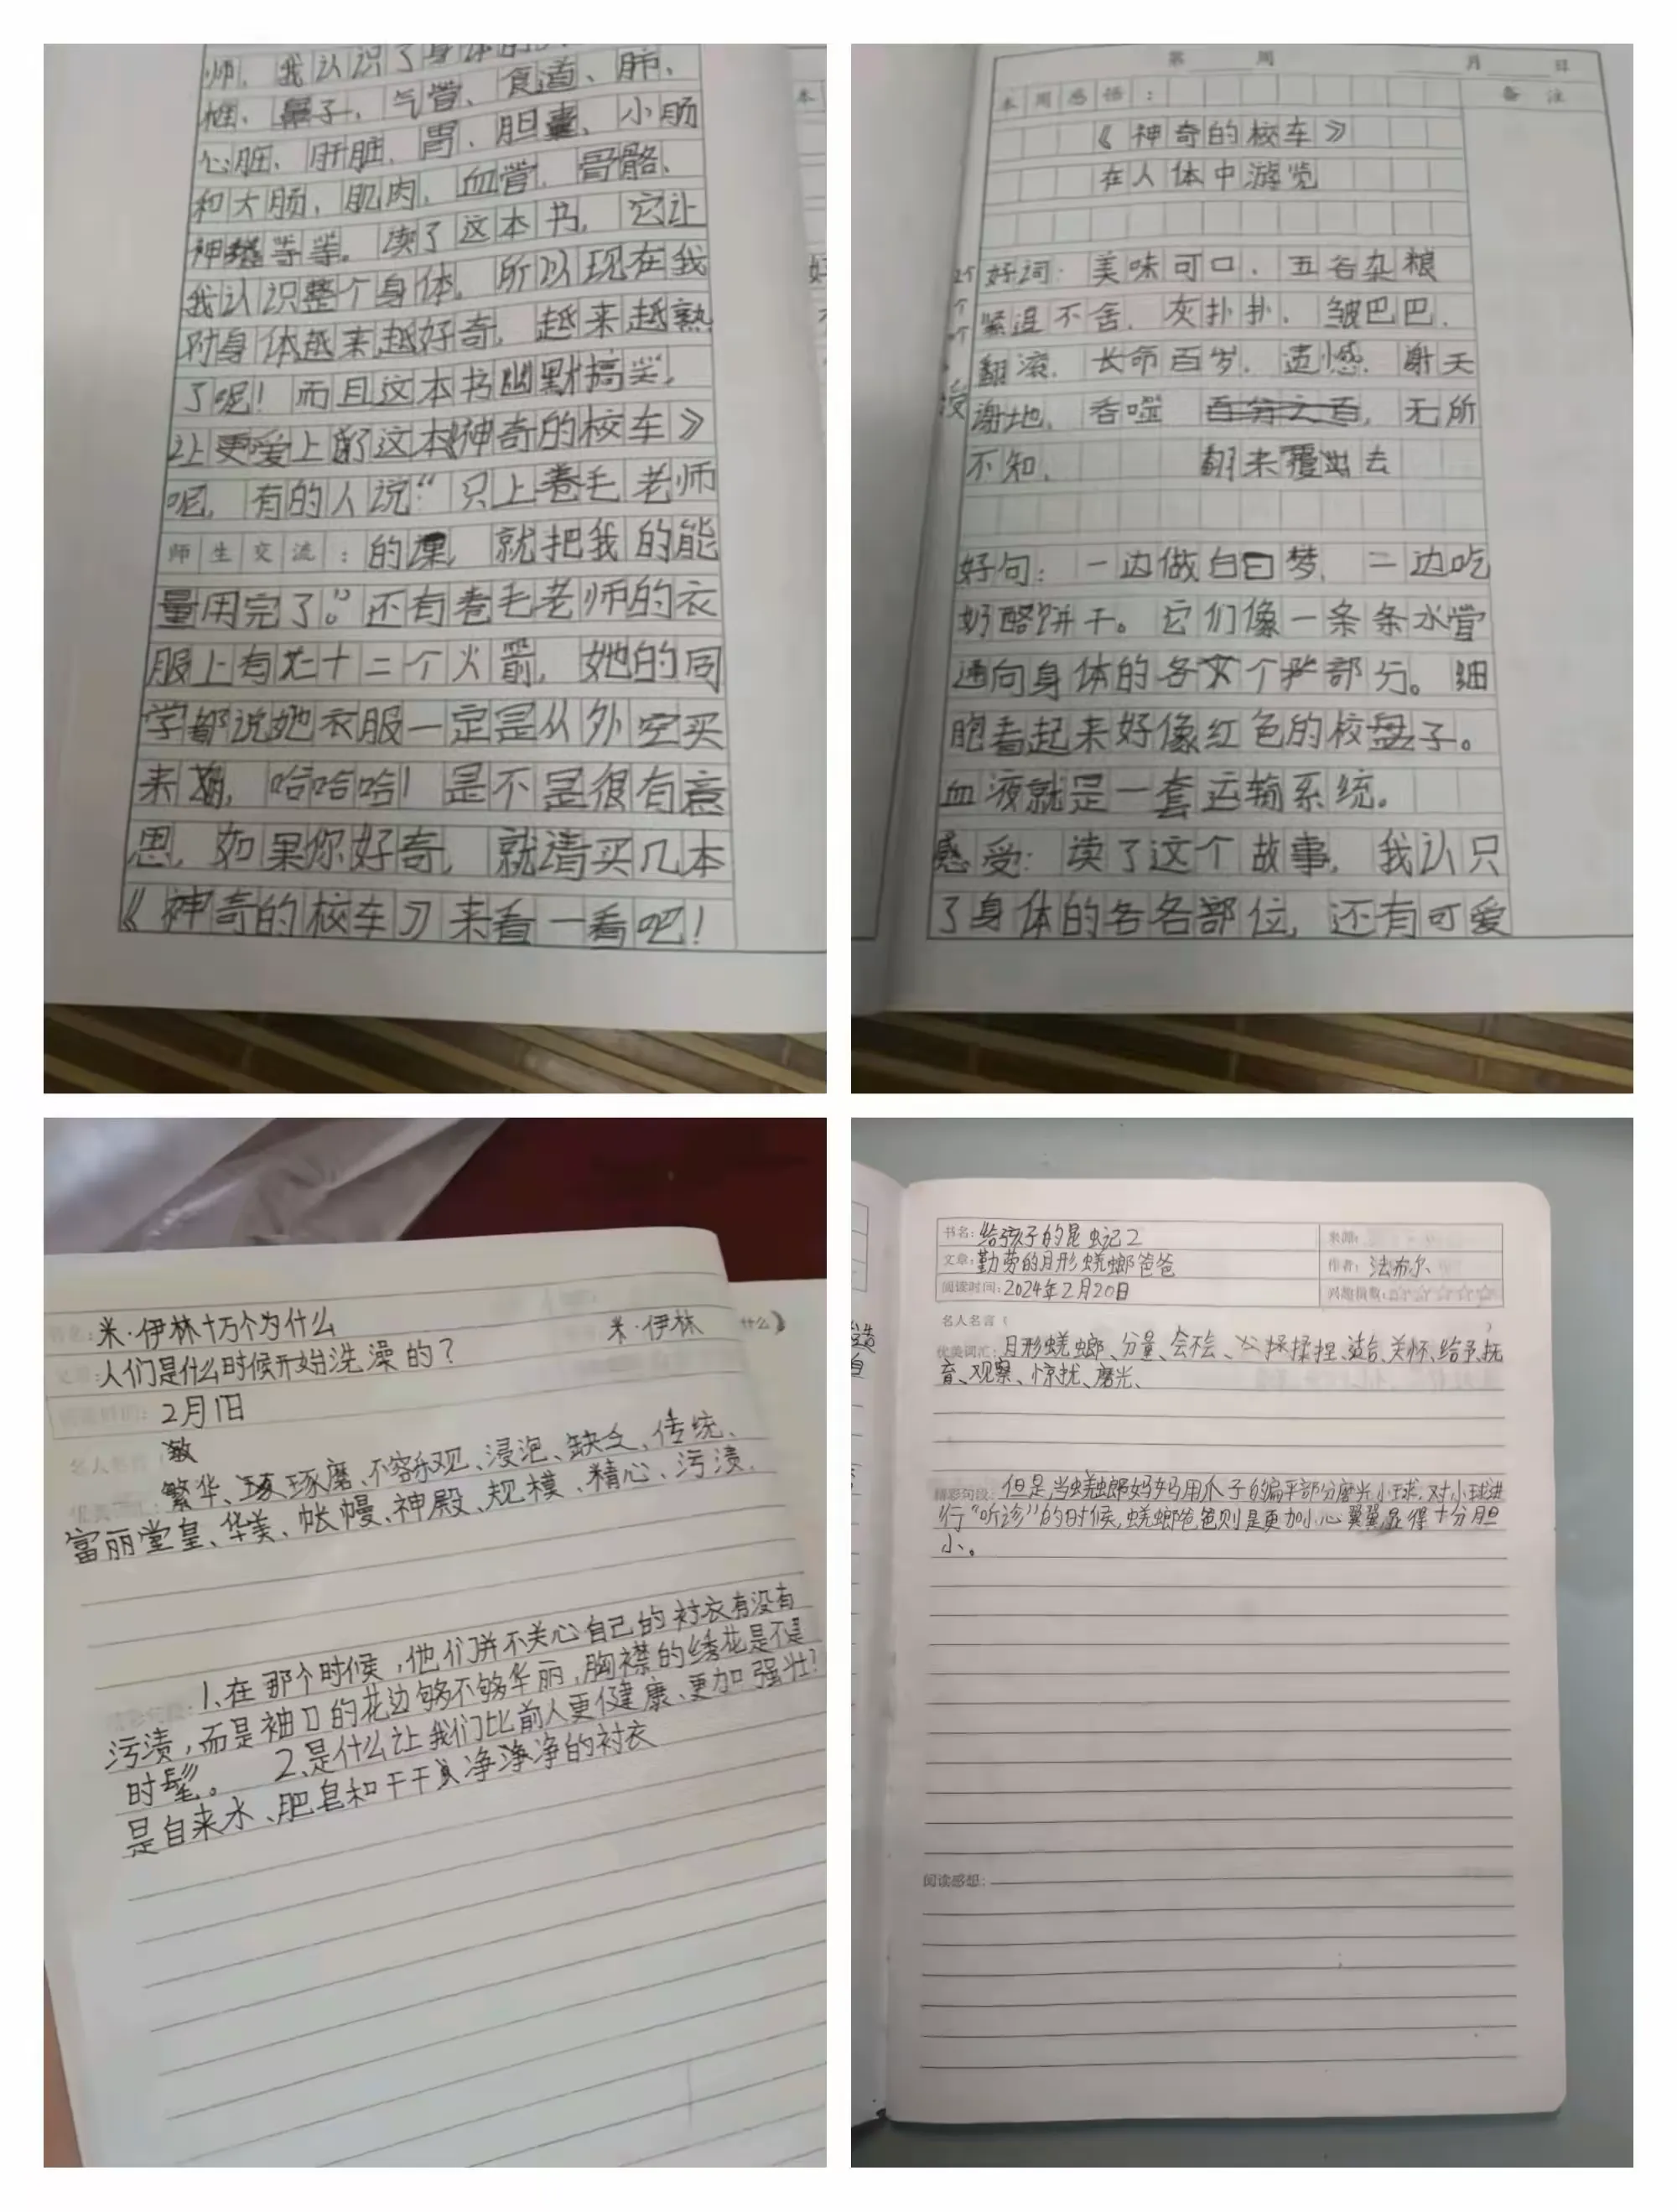 师，我认识了身体的
鼻子，气管、食道、肺、
心脏、肝脏、胃、胆囊、小肠
和大肠，肌肉，血管，骨骼、
神经等等。读了这本书，它让
我认识整个身体。所以现在我
对身体越来越好奇，越来越熟
了呢！而且这本书幽默搞笑，
让更爱上了这本《神奇的校车》
呢，有的人说：“只上卷毛老师
师生交流：的课，就把我的能
量用完了。”还有卷毛老师的衣
服上有十二个火箭，她的同
学都说她衣服一定是从外空买
来，哈哈哈！是不是很有意
思，如果你好奇，就请买几本
《神奇的校车》来看一看吧！
第 周 月 日
本周感悟：
备注
《神奇的校车》
在人体中游览
好词：美味可口，五谷杂粮
紧追不舍，灰扑扑，皱巴巴，
翻滚，长命百岁，遗憾，谢天
谢地，吞噬，无所
不知， 翻来覆去
好句：一边做白日梦，二边吃
奶酪饼干。它们像一条条水管
通向身体的各个部分。细
胞看起来好像红色的校盘子。
血液就是一套运输系统。
感受：读了这个故事，我认只
了身体的各各部位，还有可爱
书名：米·伊林十万个为什么
米·伊林
什么）
文章：人们是什么时候开始洗澡的？
2月1日
名人名言
繁华、琢磨、不容乐观、浸泡、缺乏、传统、
富丽堂皇、华美、帐幔、神殿、规模、精心、污渍、
1、在那个时候，他们并不关心自己的衬衣有没有
污渍，而是袖口的花边够不够华丽，胸襟的绣花是不是
时髦。 2、是什么让我们比前人更健康、更加强壮？
是自来水、肥皂和干干净净的衬衣
书名：给孩子的昆虫记2
来源：
文章：勤劳的月形蜣螂爸爸
作者：法布尔
阅读时间：2024年2月20日
兴趣指数：☆☆☆☆☆
名人名言：
优美词汇：月形蜣螂、分量、揉捏、适合、关怀、给予、抚
育、观察、惊扰、磨光、
精彩句段：但是，当蜣螂妈妈用爪子的扁平部分磨光小球，对小球进
行“听诊”的时候，蜣螂爸爸则是更加小心翼翼，显得十分胆
小。
阅读感想：